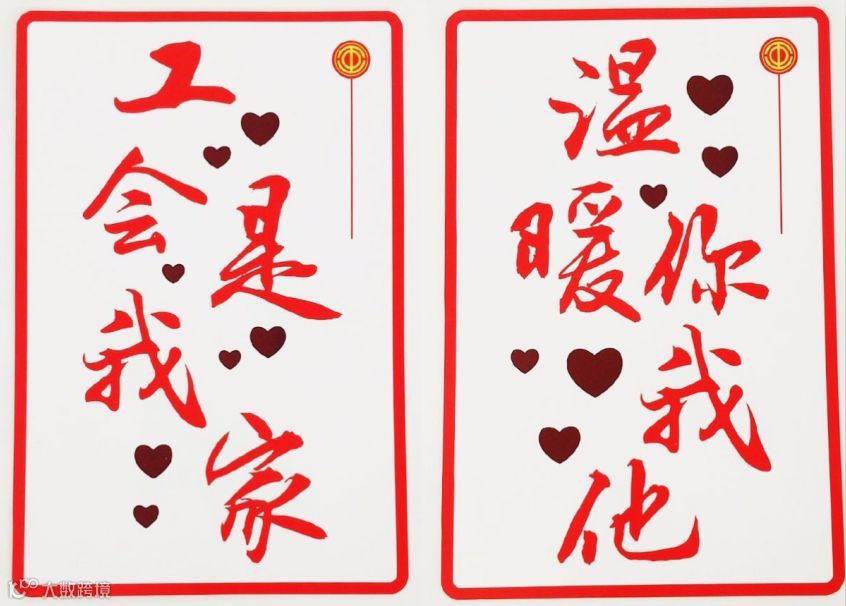 工会是我家
温暖你我他
大数跨境